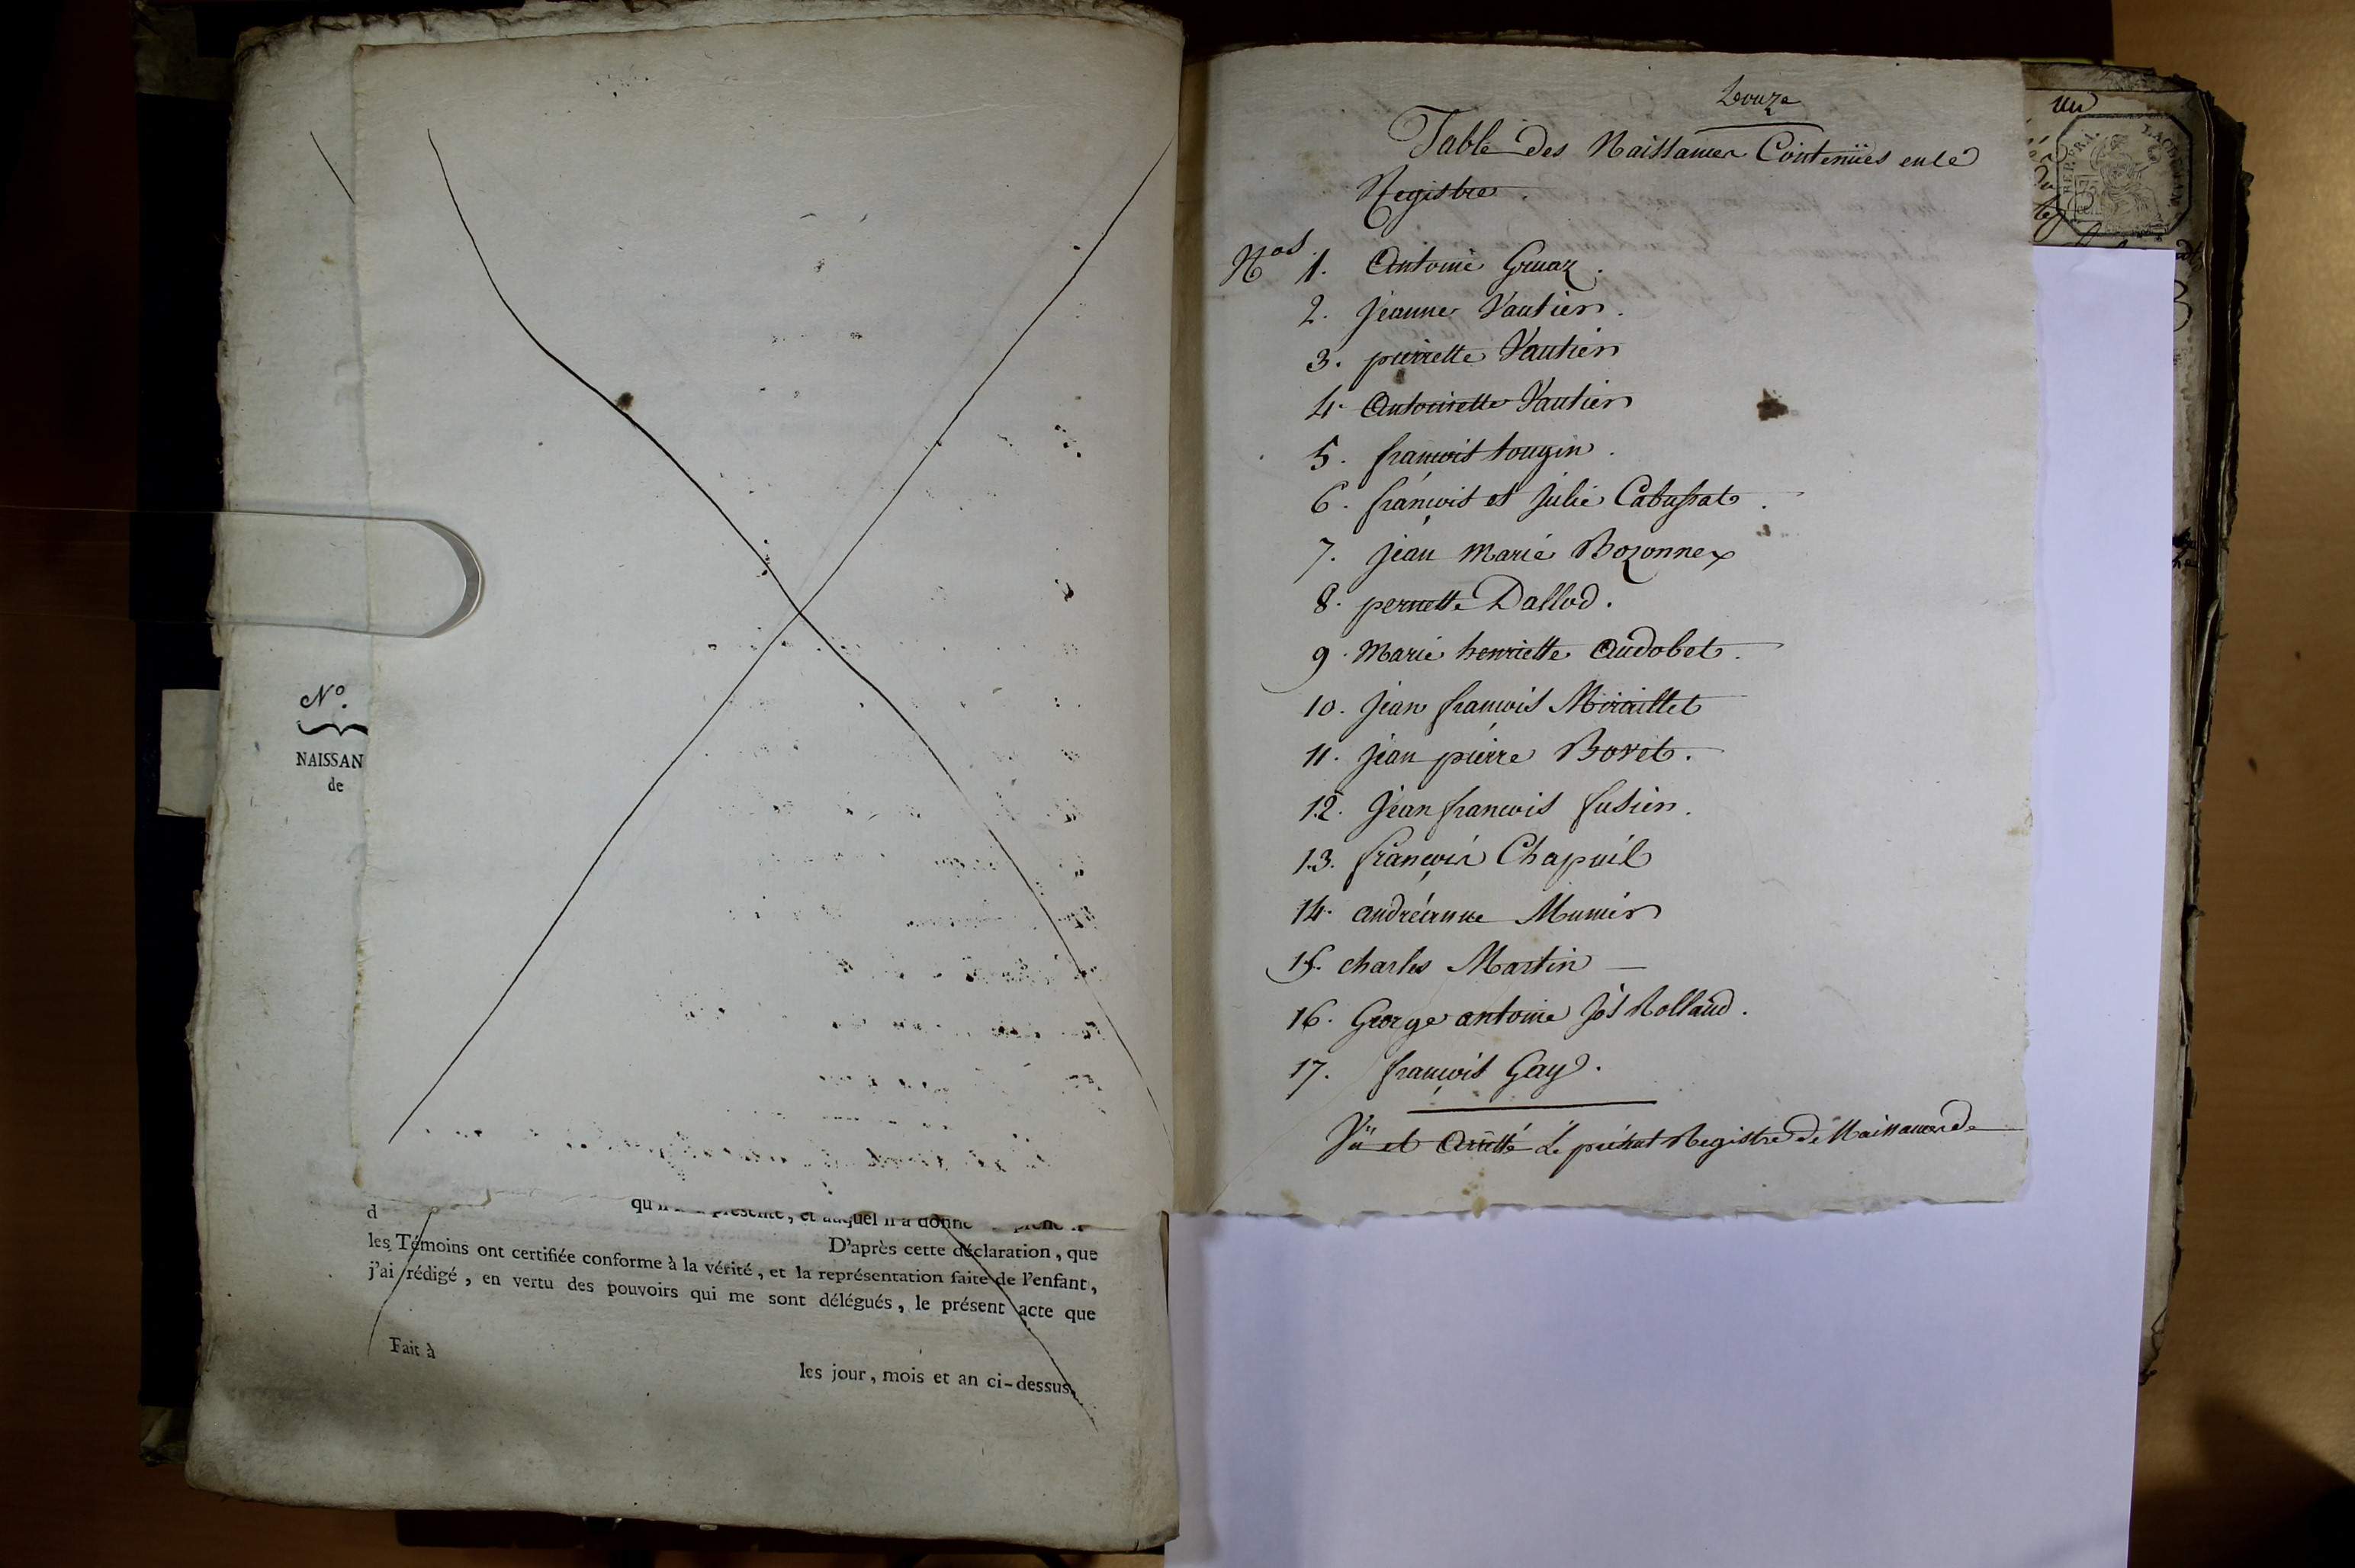 N.o
NAISSAN
de
d
D'après cette déclaration, que
les Témoins ont certifiée conforme à la vérité, et la représentation faite de l'enfant,
j'ai rédigé, en vertu des pouvoirs qui me sont délégués, le présent acte que
Fait à
les jour, mois et an ci-dessus,
Table des Naissances Contenües en le
Registre.
Nos 1. Antoine Gruaz.
2. Jeanne Vautier.
3. pierrette Vautier
4. Antoinette Vautier
5. françois tougin.
6. françois et Julie Cabussat.
7. Jean Marie Bozonnex
8. pernette Dallod.
9. Marie henriette Audobet.
10. Jean françois Miraillet
11. Jean pierre Bovet.
12. Jean francois fusier.
13. françois Chapuis
14. andréanne Munier
15. charles Martin
16. George antoine Jos Rolland.
17. françois Gay.
Vü et Arrêtté Le présent Registre de Naissances de
un